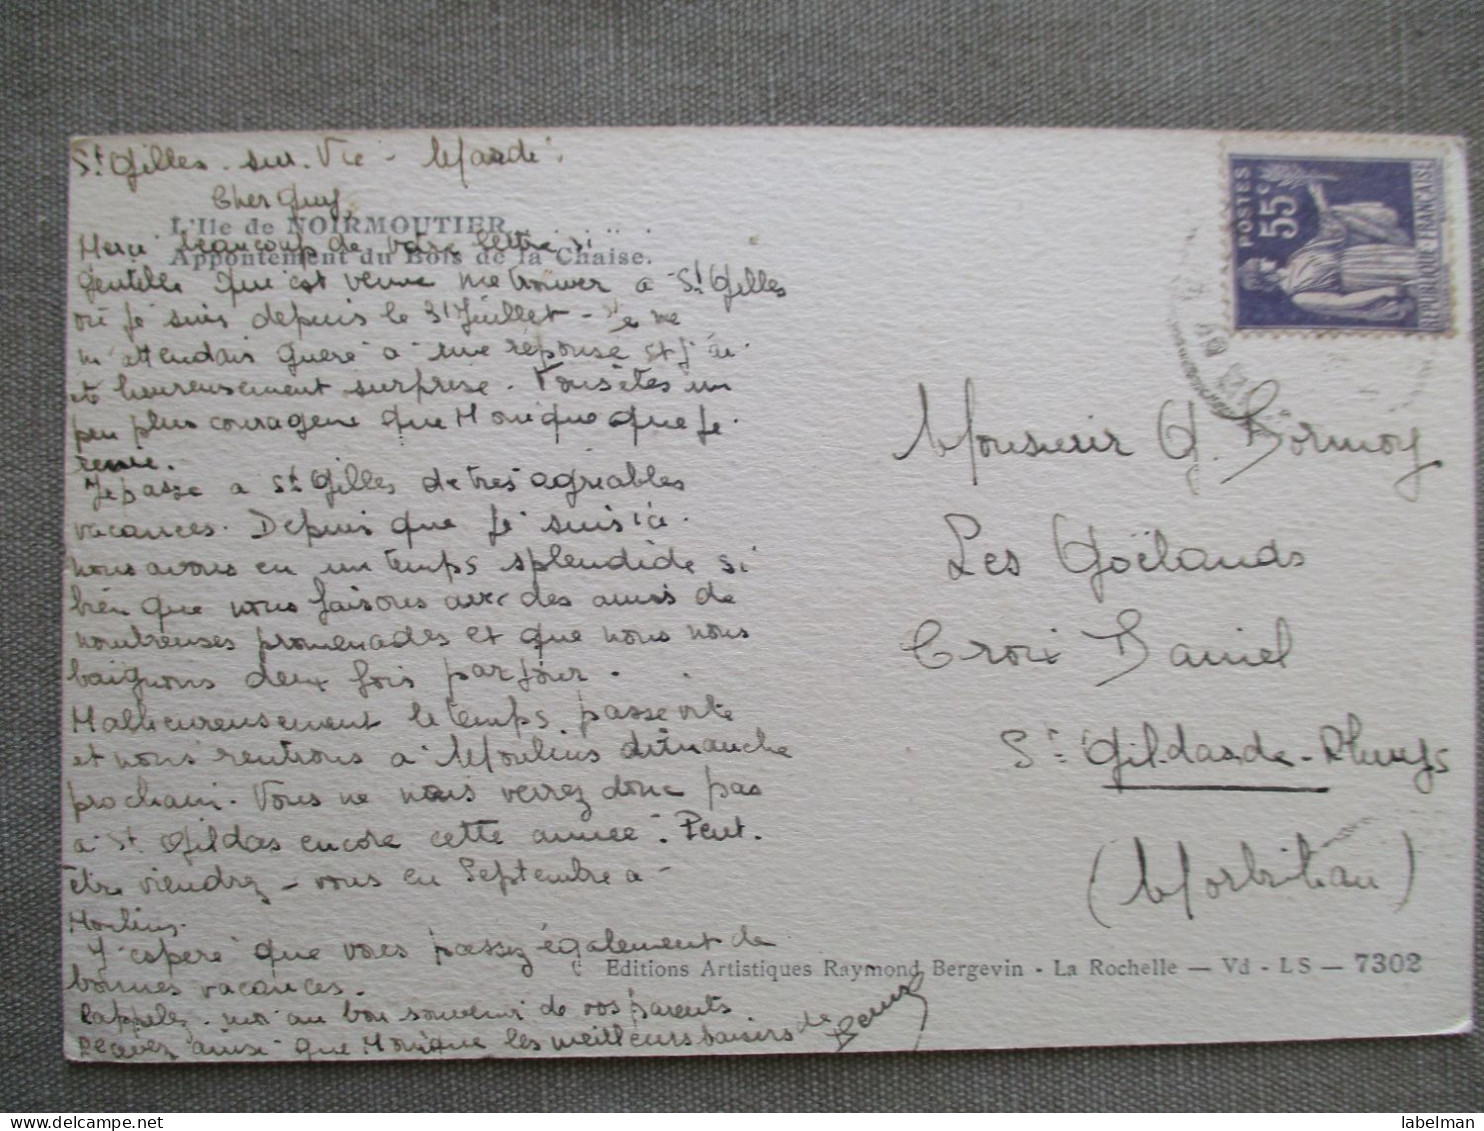 St Gilles-sur-Vie - Mardi.
Cher Guy,
L'Ile de NOIRMOUTIER.
Appontement du Bois de la Chaise.
Merci beaucoup de votre lettre si
gentille qui est venue me trouver à St Gilles
où je suis depuis le 31 Juillet - Je ne
m'attendais guère à une réponse et j'ai
été heureusement surprise. Vous êtes un
peu plus courageux que Monique que je
renie.
Je passe à St Gilles de très agréables
vacances. Depuis que je suis ici
nous avons eu un temps splendide si
bien que nous faisons avec des amis de
nombreuses promenades et que nous nous
baignons deux fois par jour.
Malheureusement le temps passe vite
et nous rentrons à Moulins dimanche
prochain. Vous ne nous verrez donc pas
à St Gildas encore cette année. Peut-
être viendrez-vous en Septembre à
Moulins.
J'espère que vous passez également de
bonnes vacances.
Rappelez-moi au bon souvenir de vos parents
Recevez ainsi que Monique les meilleurs baisers de
Monsieur G. Bormoy
Les Goëlands
Croix Daniel
St Gildas de-Rhuys
(Morbihan)
POSTES
55c
REPUBLIQUE FRANÇAISE
Editions Artistiques Raymond Bergevin - La Rochelle — Vd - LS — 7302
labelman